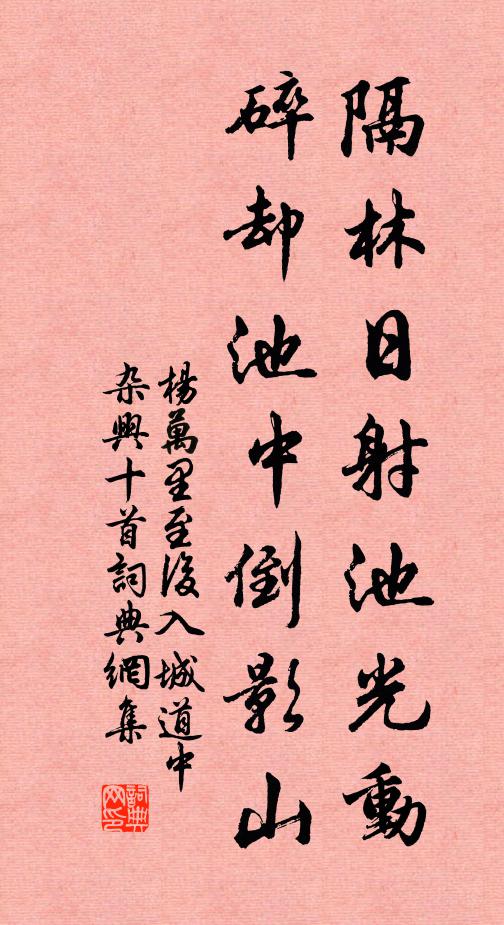 隔林日射池光動
碎却池中倒影山
楊萬里至後入城道中
杂興十首詞典網集
詞典
网印